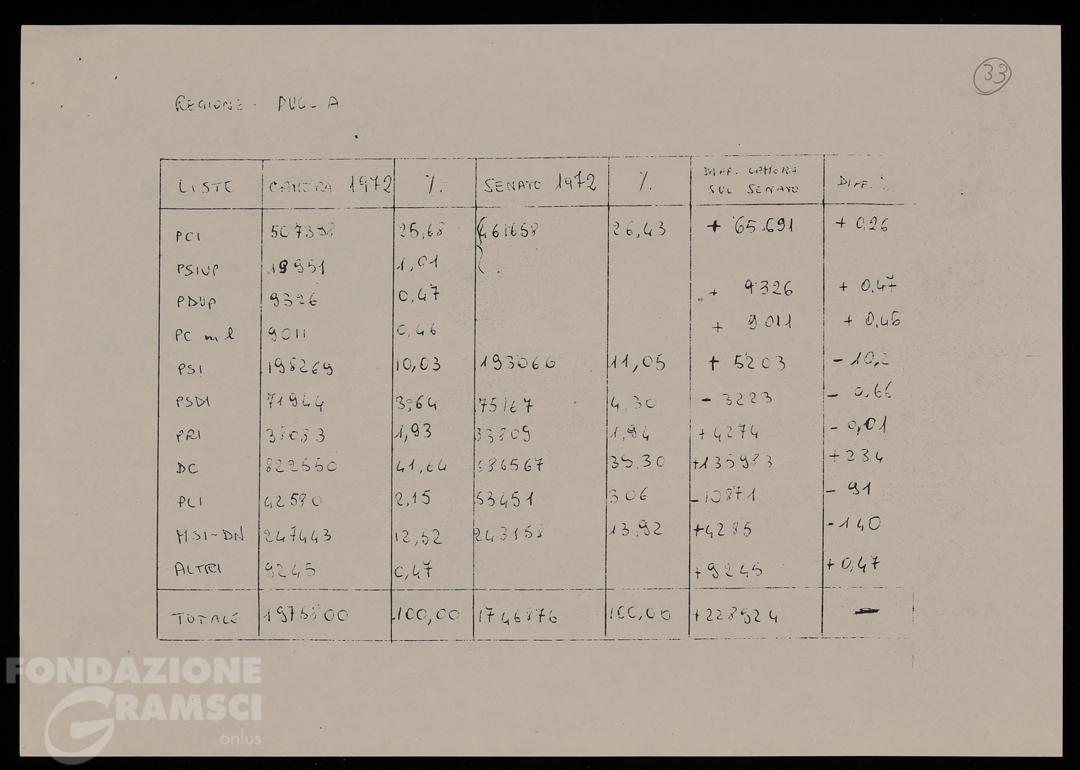 33
REGIONE - PUGLIA
LISTE CAMERA 1972 % SENATO 1972 % DIFF. CAMERA SUL SENATO DIFF. %
PCI 507398 25,68 461658 26,43 + 65.691 + 0,26
PSIUP 19951 1,01
PDUP 9326 0,47 + 9326 + 0,47
PC m l 9011 0,46 + 9011 + 0,46
PSI 198269 10,03 193066 11,05 + 5203 - 10,2
PSDI 71944 3,64 75167 4,30 - 3223 - 0,66
PRI 38083 1,93 33809 1,94 +4274 - 0,01
DC 822550 41,64 686567 39,30 +135983 +234
PLI 42580 2,15 53451 306 -10871 - 91
MSI-DN 247443 12,52 243158 13,92 +4285 -140
ALTRI 9245 0,47 +9245 + 0,47
TOTALE 1975800 100,00 1746876 100,00 +228924 -
FONDAZIONE
GRAMSCI
onlus